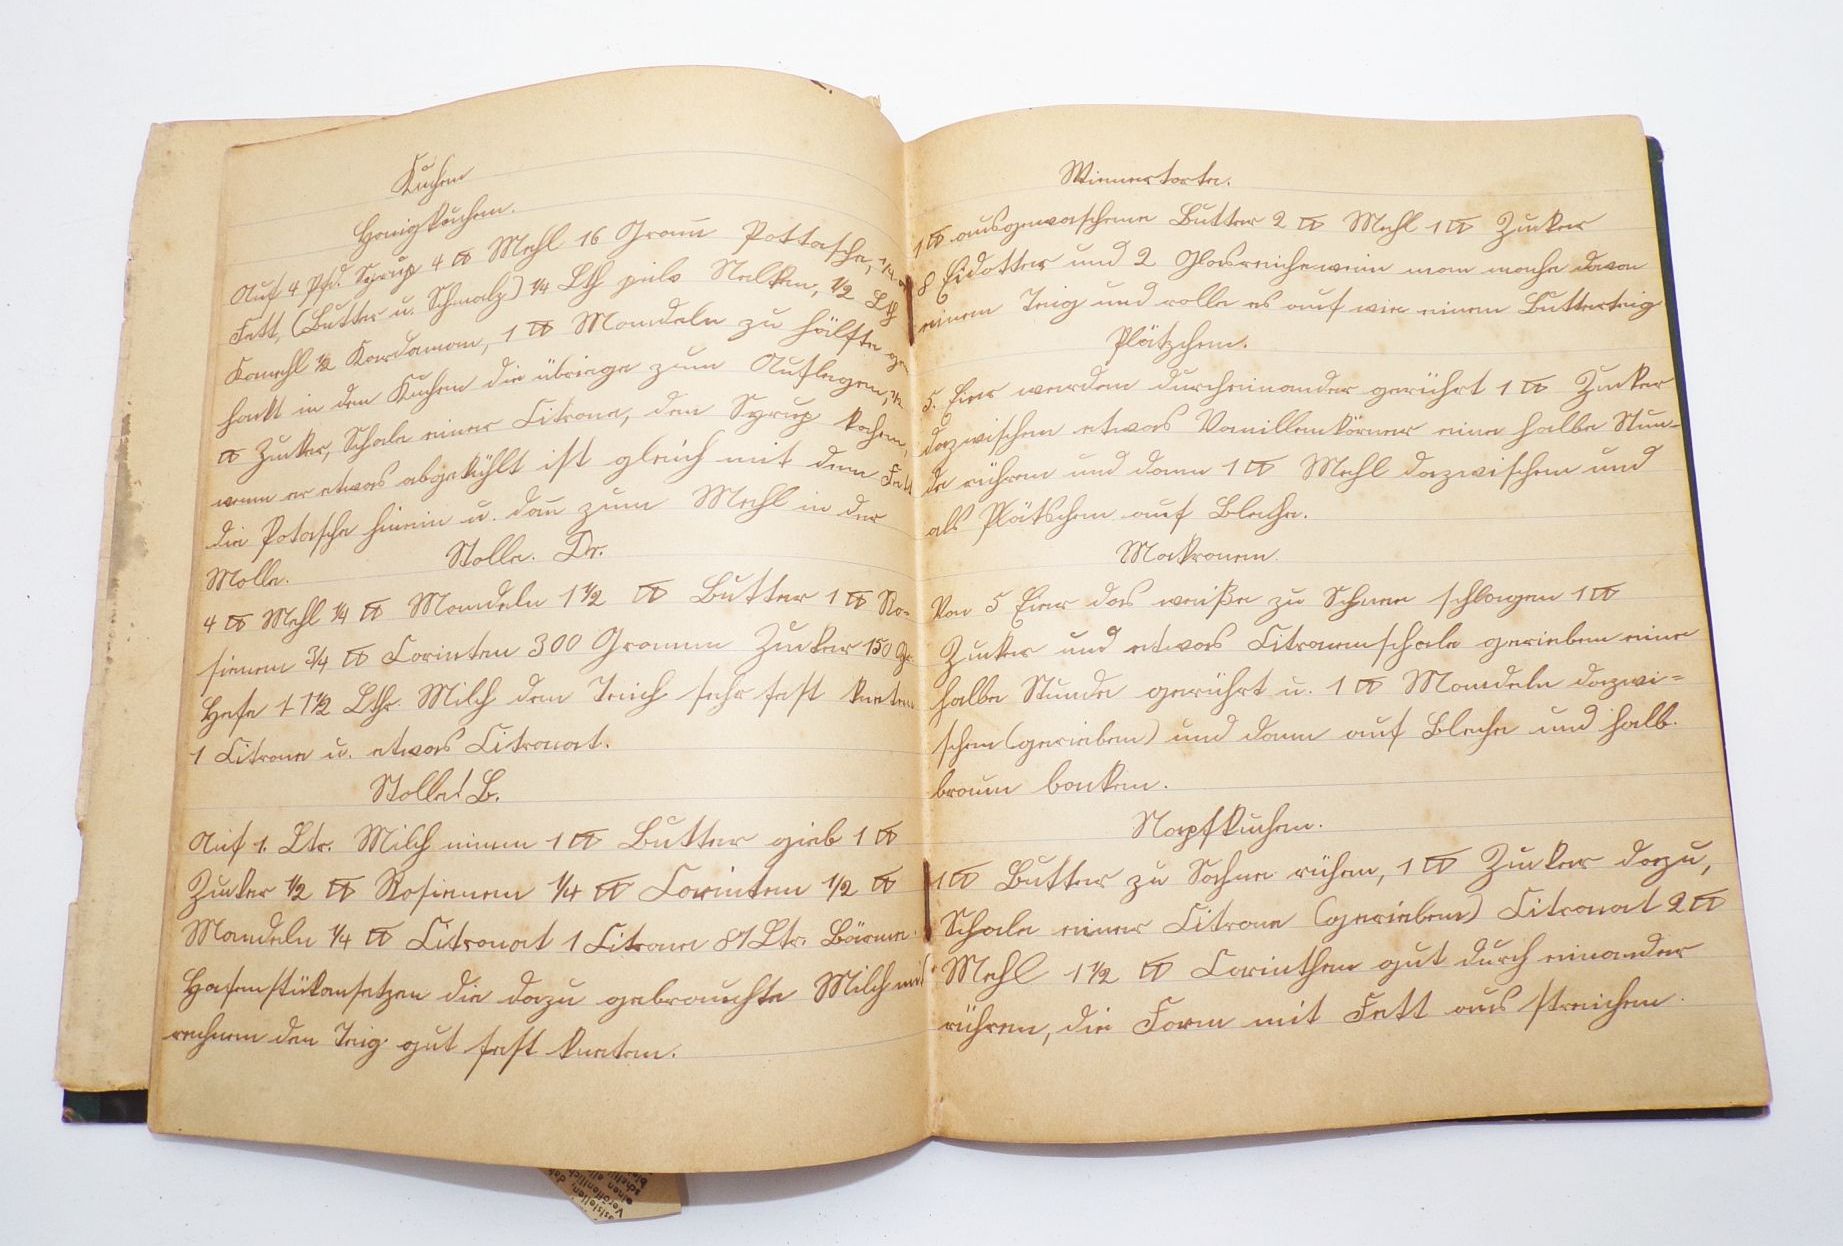 Kuchen
Honigkuchen.
Auf 4 Pfd. Syrup 4 ℔ Mehl 16 Gram̄ Pottasche,
Fett, (Butter u. Schmalz) ¼ Lth Nelken, ½ Lth
Kanehl ½ Kardamom, 1 ℔ Mandeln zu hälfte ge
hakt in den Kuchen die übriege zum Auflegen, ½
℔ Zucker, Schale einer Citrone, den Syrup kochen,
wenn er etwas abgekühlt ist gleich mit dem Fett
die Potasche hinein u. dan̄ zum Mehl in der
Molle.
Stolle. Dr.
4 ℔ Mehl ¼ ℔ Mandeln 1½ ℔ Butter 1 ℔ Ro-
sienen ¾ ℔ Corinten 300 Gramm Zucker 150 Gr.
Hefe 1½ Lthr. Milch den Teich sehr fest kneten
1 Citrone u. etwas Citronat.
Stolle! B.
Auf 1. Ltr. Milch nimm 1 ℔ Butter gieb 1 ℔
Zucker ½ ℔ Rosienen ¼ ℔ Corinten ½ ℔
Mandeln ¼ ℔ Citronat 1 Citrone Ltr. Bärme.
Hefenstükansetzen die dazu gebrauchte Milch mit
rechnen den Teig gut fest kneten.
Wienertorte.
1 ℔ ausgewaschene Butter 2 ℔ Mehl 1 ℔ Zucker
8 Eidotter und 2 Glas man mache davon
einen Teig und rolle es auf wie einen Butterteig
Plätzchen.
5. Eier werden durcheinander gerührt 1 ℔ Zucker
dazwischen etwas Vanillenkörner eine halbe Stun-
de rühren und dann 1 ℔ Mehl dazwischen und
als Plätschen auf Bleche.
Makronen.
Von 5 Eier das weiße zu Schnee schlagen 1 ℔
Zucker und etwas Citronenschale gerieben eine
halbe Stunde gerührt u. 1 ℔ Mandeln dazwi=
schen (gerieben) und dann auf Bleche und halb.
braun backen.
Napfkuchen.
1 ℔ Butter zu Sahne rühen, 1 ℔ Zucker dazu,
Schale einer Citrone (gerieben) Citronat 2 ℔
Mehl 1½ ℔ Corinthen gut durch einander
rühren, die Form mit Fett aus streichen.